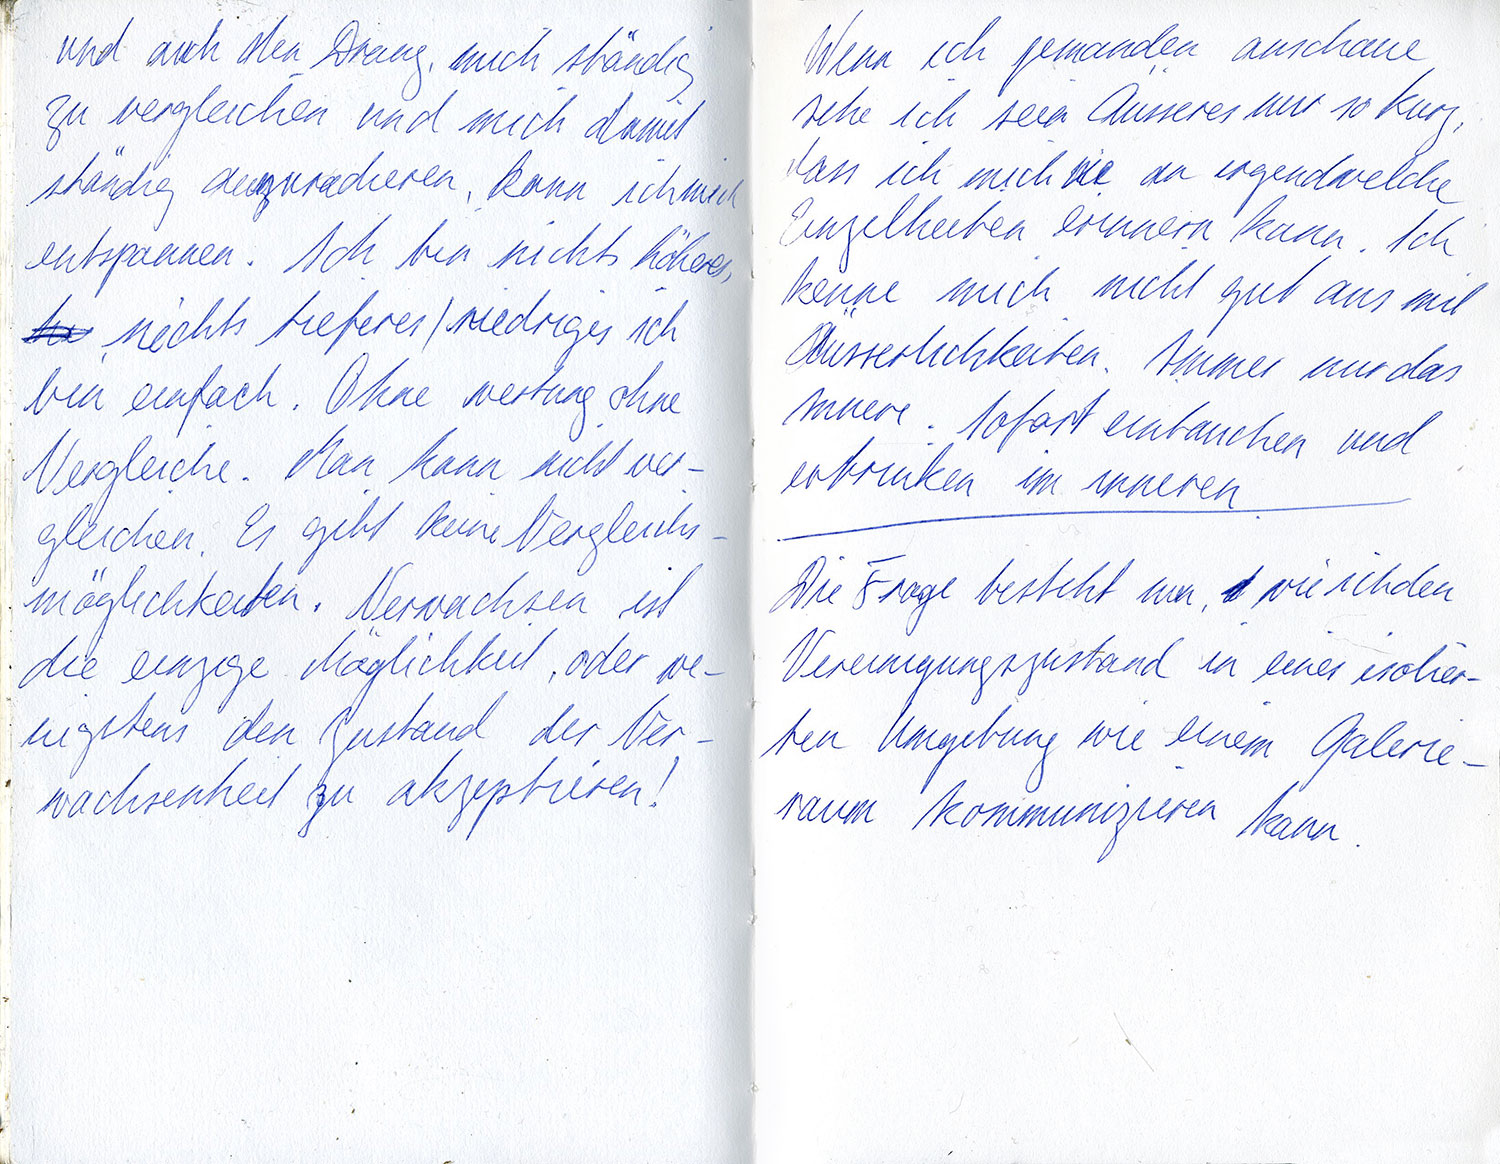 und auch den Drang, mich ständig
zu vergleichen und mich damit
ständig auszuradieren, kann ich mich
entspannen. Ich bin nichts höheres,
nichts tieferes/niedriges ich
bin einfach. Ohne wertung ohne
Vergleiche. Man kann nicht ver-
gleichen. Es gibt keine Vergleichs-
möglichkeiten. Verwachsen ist
die einzige Möglichkeit, oder we-
nigstens den Zustand der Ver-
wachsenheit zu akzeptieren!
Wenn ich jemanden anschaue,
sehe ich sein Äusseres nur so kurz,
dass ich mich nie an irgendwelche
Einzelheiten erinnern kann. Ich
kenne mich nicht gut aus mit
Äusserlichkeiten. Immer nur das
Innere. Sofort eintauchen und
ertrinken im inneren
Die Frage besteht nun, wie ich den
Vereinigungszustand in einer isolier-
ten Umgebung wie einem Galerie-
raum kommunizieren kann.